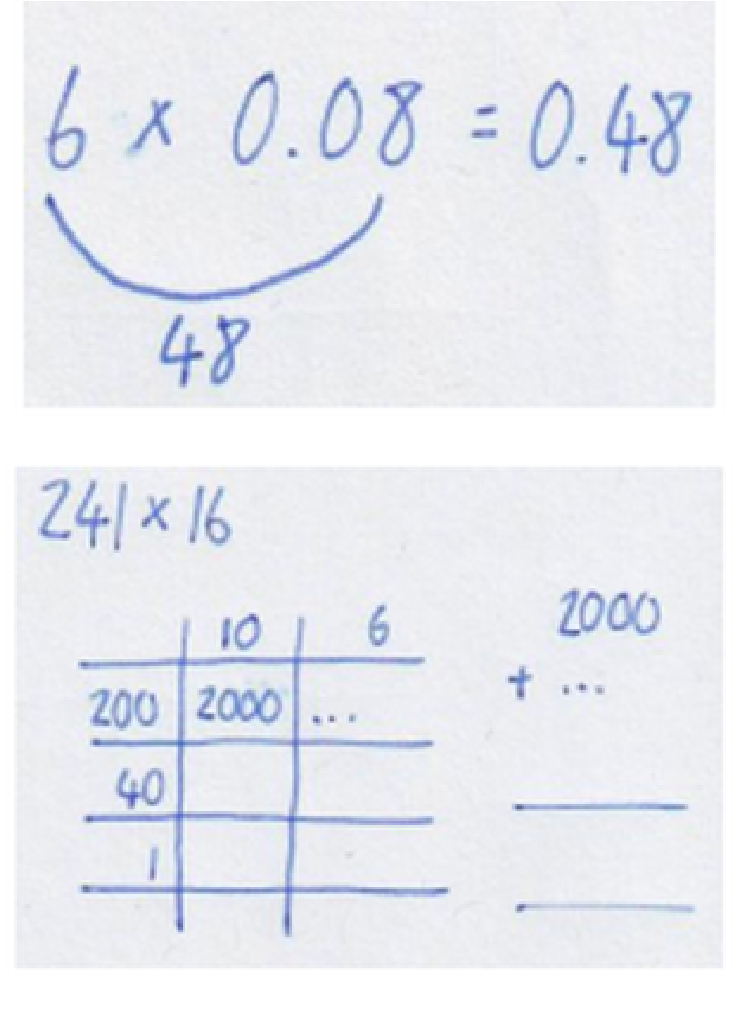 6 x 0.08 = 0.48
48
241 x 16
10 6
200 2000 ...
40
1
2000
+ ...